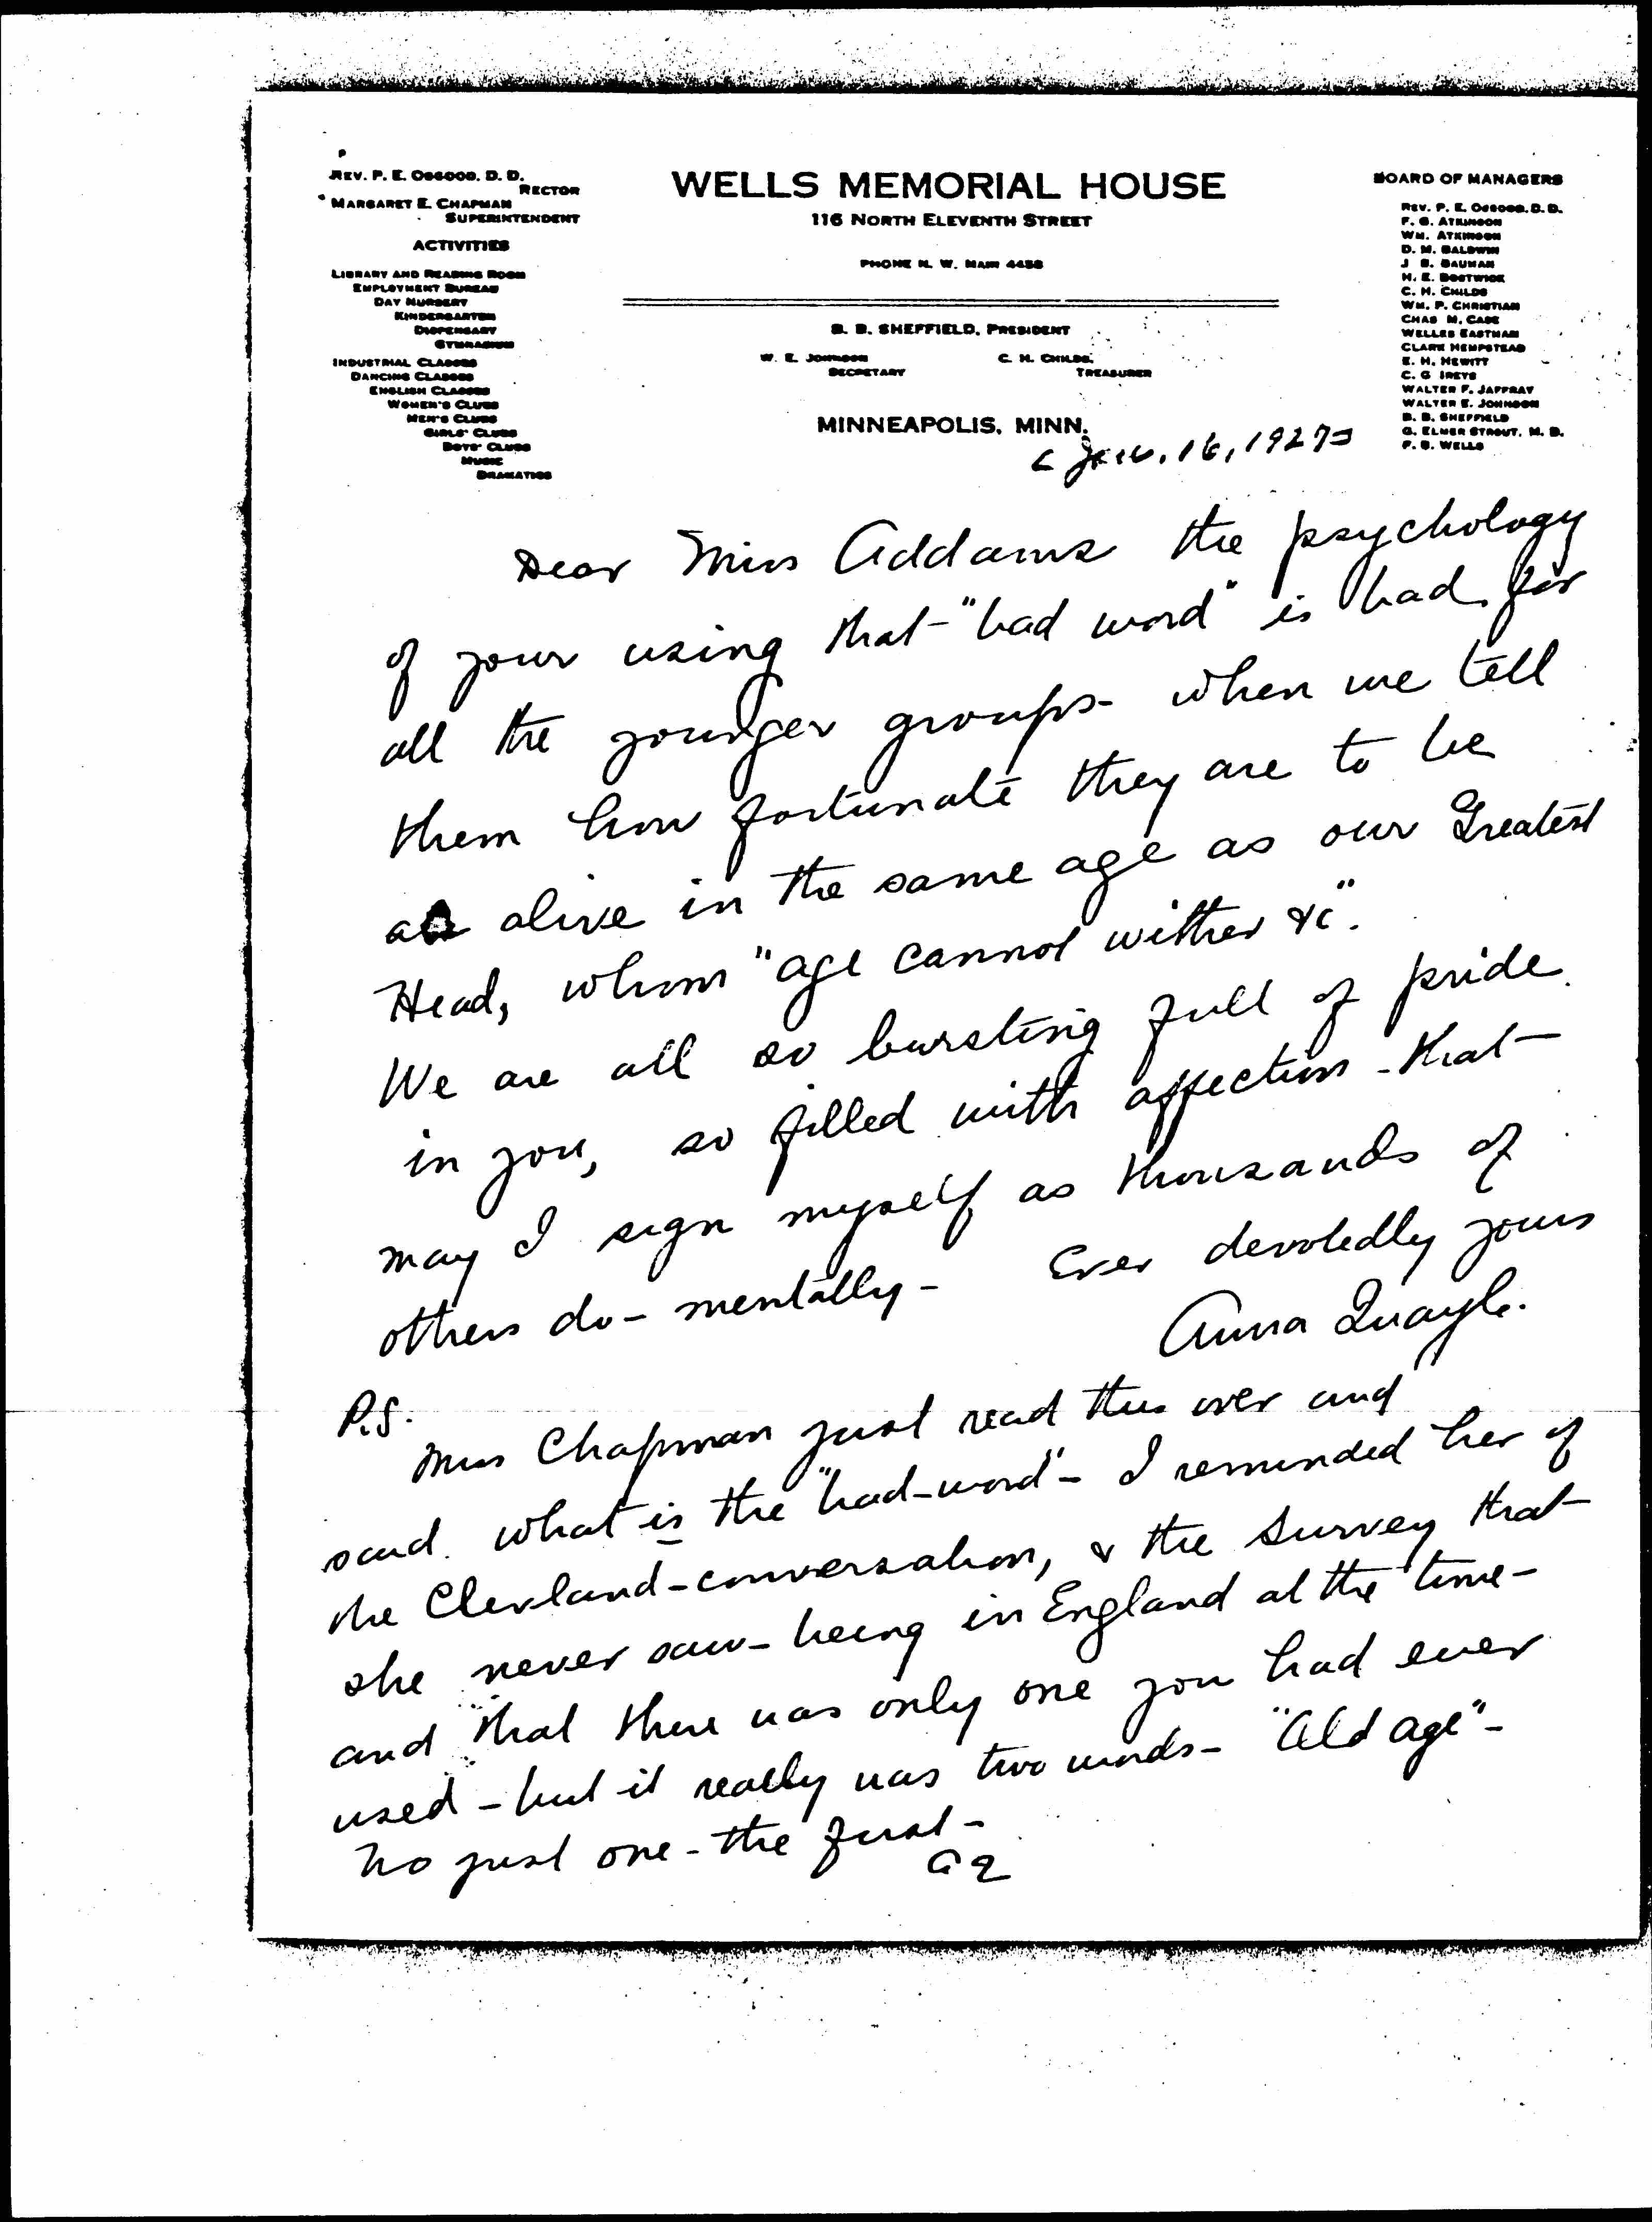 REV. P. E. OSGOOD, D. D.
RECTOR
MARGARET E. CHAPMAN
SUPERINTENDENT
ACTIVITIES
LIBRARY AND READING ROOM
EMPLOYMENT BUREAU
DAY NURSERY
KINDERGARTEN
DISPENSARY
GYMNASIUM
INDUSTRIAL CLASSES
DANCING CLASSES
ENGLISH CLASSES
WOMEN'S CLUBS
MEN'S CLUBS
GIRLS' CLUBS
BOYS' CLUBS
MUSIC
DRAMATICS
WELLS MEMORIAL HOUSE
116 NORTH ELEVENTH STREET
PHONE N. W. MAIN 4458
B. B. SHEFFIELD, PRESIDENT
W. E. JOHNSON
SECRETARY
C. H. CHILDS,
TREASURER
MINNEAPOLIS, MINN.
BOARD OF MANAGERS
REV. P. E. OSGOOD, D. D.
F. G. ATKINSON
WM. ATKINSON
D. M. BALDWIN
J B. BAUMAN
H. E. BOSTWICK
C. H. CHILDS
WM. P. CHRISTIAN
CHAS M. CASE
WELLES EASTMAN
CLARK HEMPSTEAD
E. H. HEWITT
C. G IREYS
WALTER F. JAFFRAY
WALTER E. JOHNSON
B. B. SHEFFIELD
G. ELMER STROUT, M. D.
F. B. WELLS
Jan. 16, 1927
Dear Miss Addams the psychology
of your using that "bad word" is bad for
all the younger groups - when we tell
them how fortunate they are to be
alive in the same age as our Greatest
Head, whom "age cannot wither &c".
We are all so bursting full of pride
in you, so filled with affection - that
may I sign myself as thousands of
others do - mentally - Ever devotedly yours
Anna Quayle.
P.S.
Miss Chapman just read this over and
said what is the "bad-word" - I reminded her of
the Clevland-conversation, & the Survey that
she never saw - being in England at the time -
and that there was only one you had ever
used - but it really was two words - "Old age" -
No just one - the first -
AQ